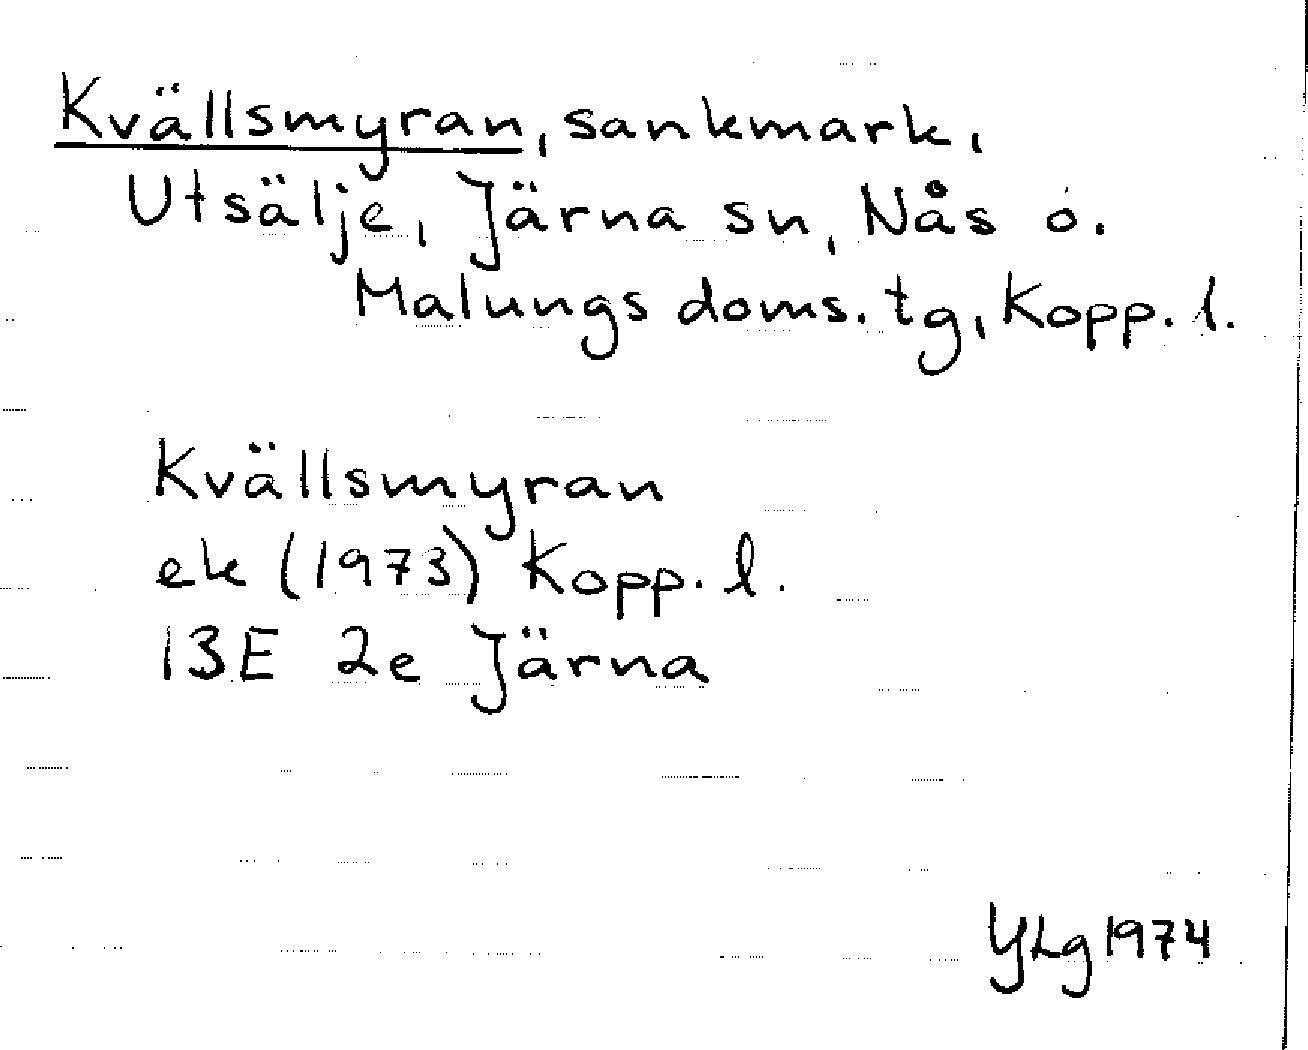 Kvällsmyran, sankmark,
Utsälje, Järna sn, Nås o.
Malungs doms. tg, Kopp. l.
Kvällsmyran
ek (1973) Kopp. l.
13E 2e Järna
YLg 1974